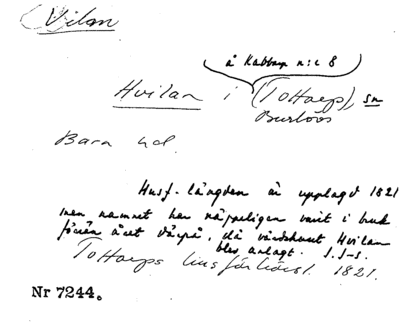 Vilan
å Kabbarp n:c 8
Hvilan i (Tottarp), sn
Burlövs
Bara hd.
Husf.-längden är upplagd 1821
men namnet har näppeligen varit i bruk
förrän året därpå, då värdshuset Hvilan
blev anlagt. I.I-S.
Tottarps husförhörsl. 1821.
Nr 7244.